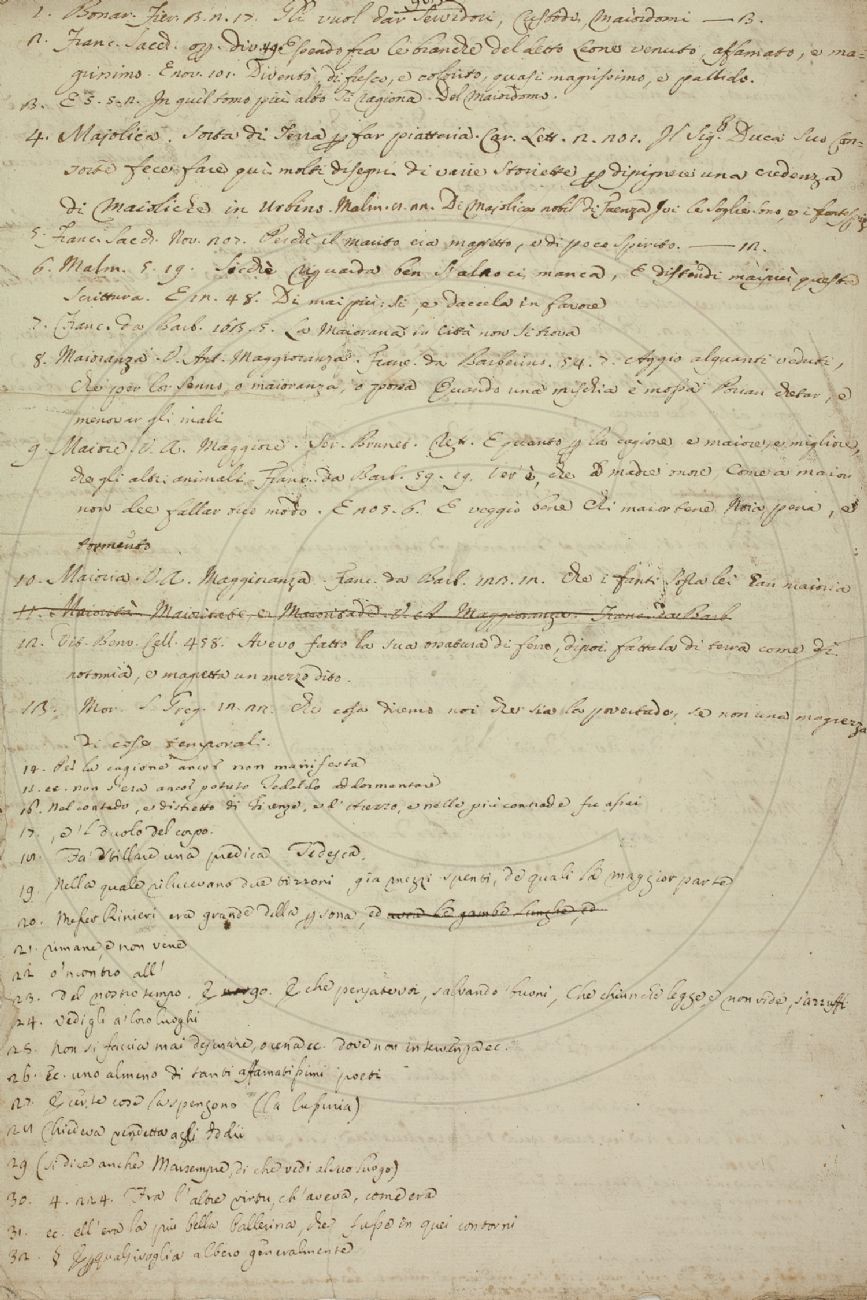 1. Bonar. Fier. 3. 2. 17. Gli vuol dar Servidori, Custodi, Maiordomi — 13.
2. Franc. Sacch. Op. div. Essendo fra le branche del detto Leone venuto, affamato, e ma=
grissimo. E nov. 101. Diventò di fresco, e colorito, quasi magrissimo, e pallido.
3. E 5. 5. 2. In quel tomo più alto si ragiona del Maiordomo.
4. Majolica. Sorta di Terra p far piatteria. Car. Lett. 2. 201. Il Sig.r Duca suo Con-
sorte fece fare quì molti disegni di varie Storiette p dipignere una credenza
di Maioliche in Urbino. Malm. Di Majolica nobil di Faenza Ivi le soglie sono, e i
5. Franc. Sacch. Nov. 207. Perchè il marito era magretto, e di poco spirito. — 12.
6. Malm. 5. 19. Sicchè riguarda ben s'altro ci manca, E distendi maipiù questa
Scrittura. E 12. 48. Di mai più sì, e daccela in favore
7. Franc. da Barb. La Maioranà in Città non si trova
8. Maioranza. V. A. Maggioranza. Franc. da Barberino. 54. 7. Aggio alquanti veduti,
Che per lor senno, o maioranza, o possa Quando una mischia è mossa Posson chetar, e
menovar gli mali
9. Maiore. V. A. Maggiore. Ser. Brunet. Ret. E quanto p la cagione e maiore, e migliore,
che gli altri animali. Franc. da Barb. 59. 19. Ver'è, che a madre onor come a maior
non dee fallar ogni modo. E 205. 6. E veggio bene Chi maior tene Noia pena, e
tormento
10. Maioria. V. A. Maggioranza. Franc. da Barb. 122. 12. Che i fanti sotto lei Han maioria
11. Maiorità. Maioritate, e Maioritade. V. A. Maggioranza. Franc. da Barb.
12. Vit. Benv. Cell. 458. Avevo fatto la sua ossatura di ferro, dipoi fattala di terra come di
notomia, e magretta un mezzo dito.
13. Mor. S. Greg. 12. 22. Che cosa diremo noi che sia la povertade, se non una magrezza
di cose temporali.
14. Per la cagione ancor non manifesta
15. ec. non s'era ancor potuto Tedaldo addormentare
16. Nel contado, e distretto di Firenze, e d'Arezzo, e nelle più contrade fu assai
17. , e 'l duolo del capo.
18. Fa stillare una predica Tedesca.
19. Nella quale rilucevano due tizzoni già mezzi spenti, de quali la maggior parte
20. Messer Rinieri era grande della p sona, ed avea le gambe lunghe, ed
21. rimane, e non vene
22. o'ncontro all'
23. Del nostro tempo. E che pensatevoi, salvando fuoni, Che chiunche legge, e non vide, s'azzuffi
24. vedi gli a' loro luoghi
25. Non si faccia mai desinare, o cena ec. dove non intervenga ec.
26. Ec. uno almeno di tanti affamatissimi poeti
27. E certe cose la spengono (la lussuria)
28 Chiedeva vendetta agli Addii
29 (si dice anche Maisempre, di che vedi al suo luogo)
30. 4. 224. Fra l'altre virtù, ch'aveva, com'era
31. ec. ell'era la più bella ballerina, che fusse in quei contorni
32. § E p qualsivoglia albero generalmente